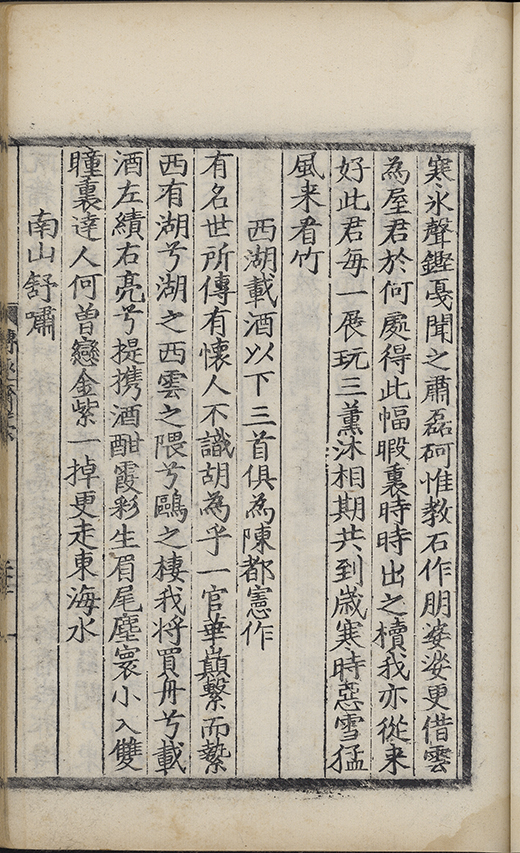 寒氷聲鏗戞聞之肅磊砢惟教石作朋婆娑更借雲
為屋君於何處得此幅暇裏時時出之櫝我亦從来
好此君每一展玩三薰沐相期共到歲寒時惡雪猛
風来看竹
西湖載酒以下三首俱為陳都憲作
有名世所傳有懷人不識胡為乎一官華巔繫而縶
西有湖兮湖之西雲之隈兮鷗之棲我將買舟兮載
酒左績右亮兮提攜酒酣霞彩生眉尾塵寰小入雙
瞳裏達人何曽戀金紫一掉更走東海水
南山舒嘯